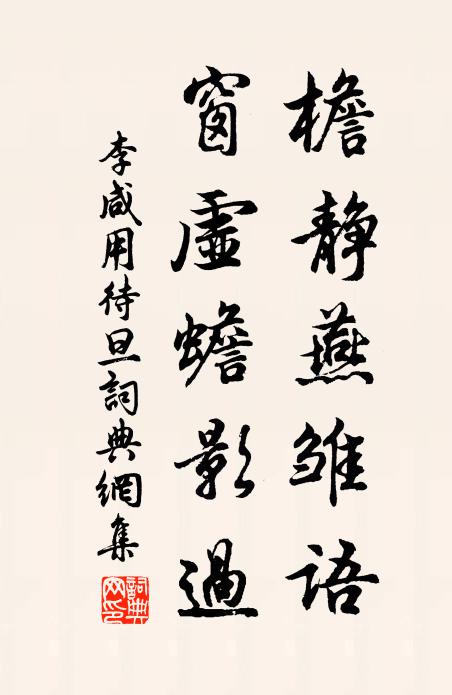 檐静燕雏語
窗虛蟾影過
李咸用待旦詞典網集
詞典網印